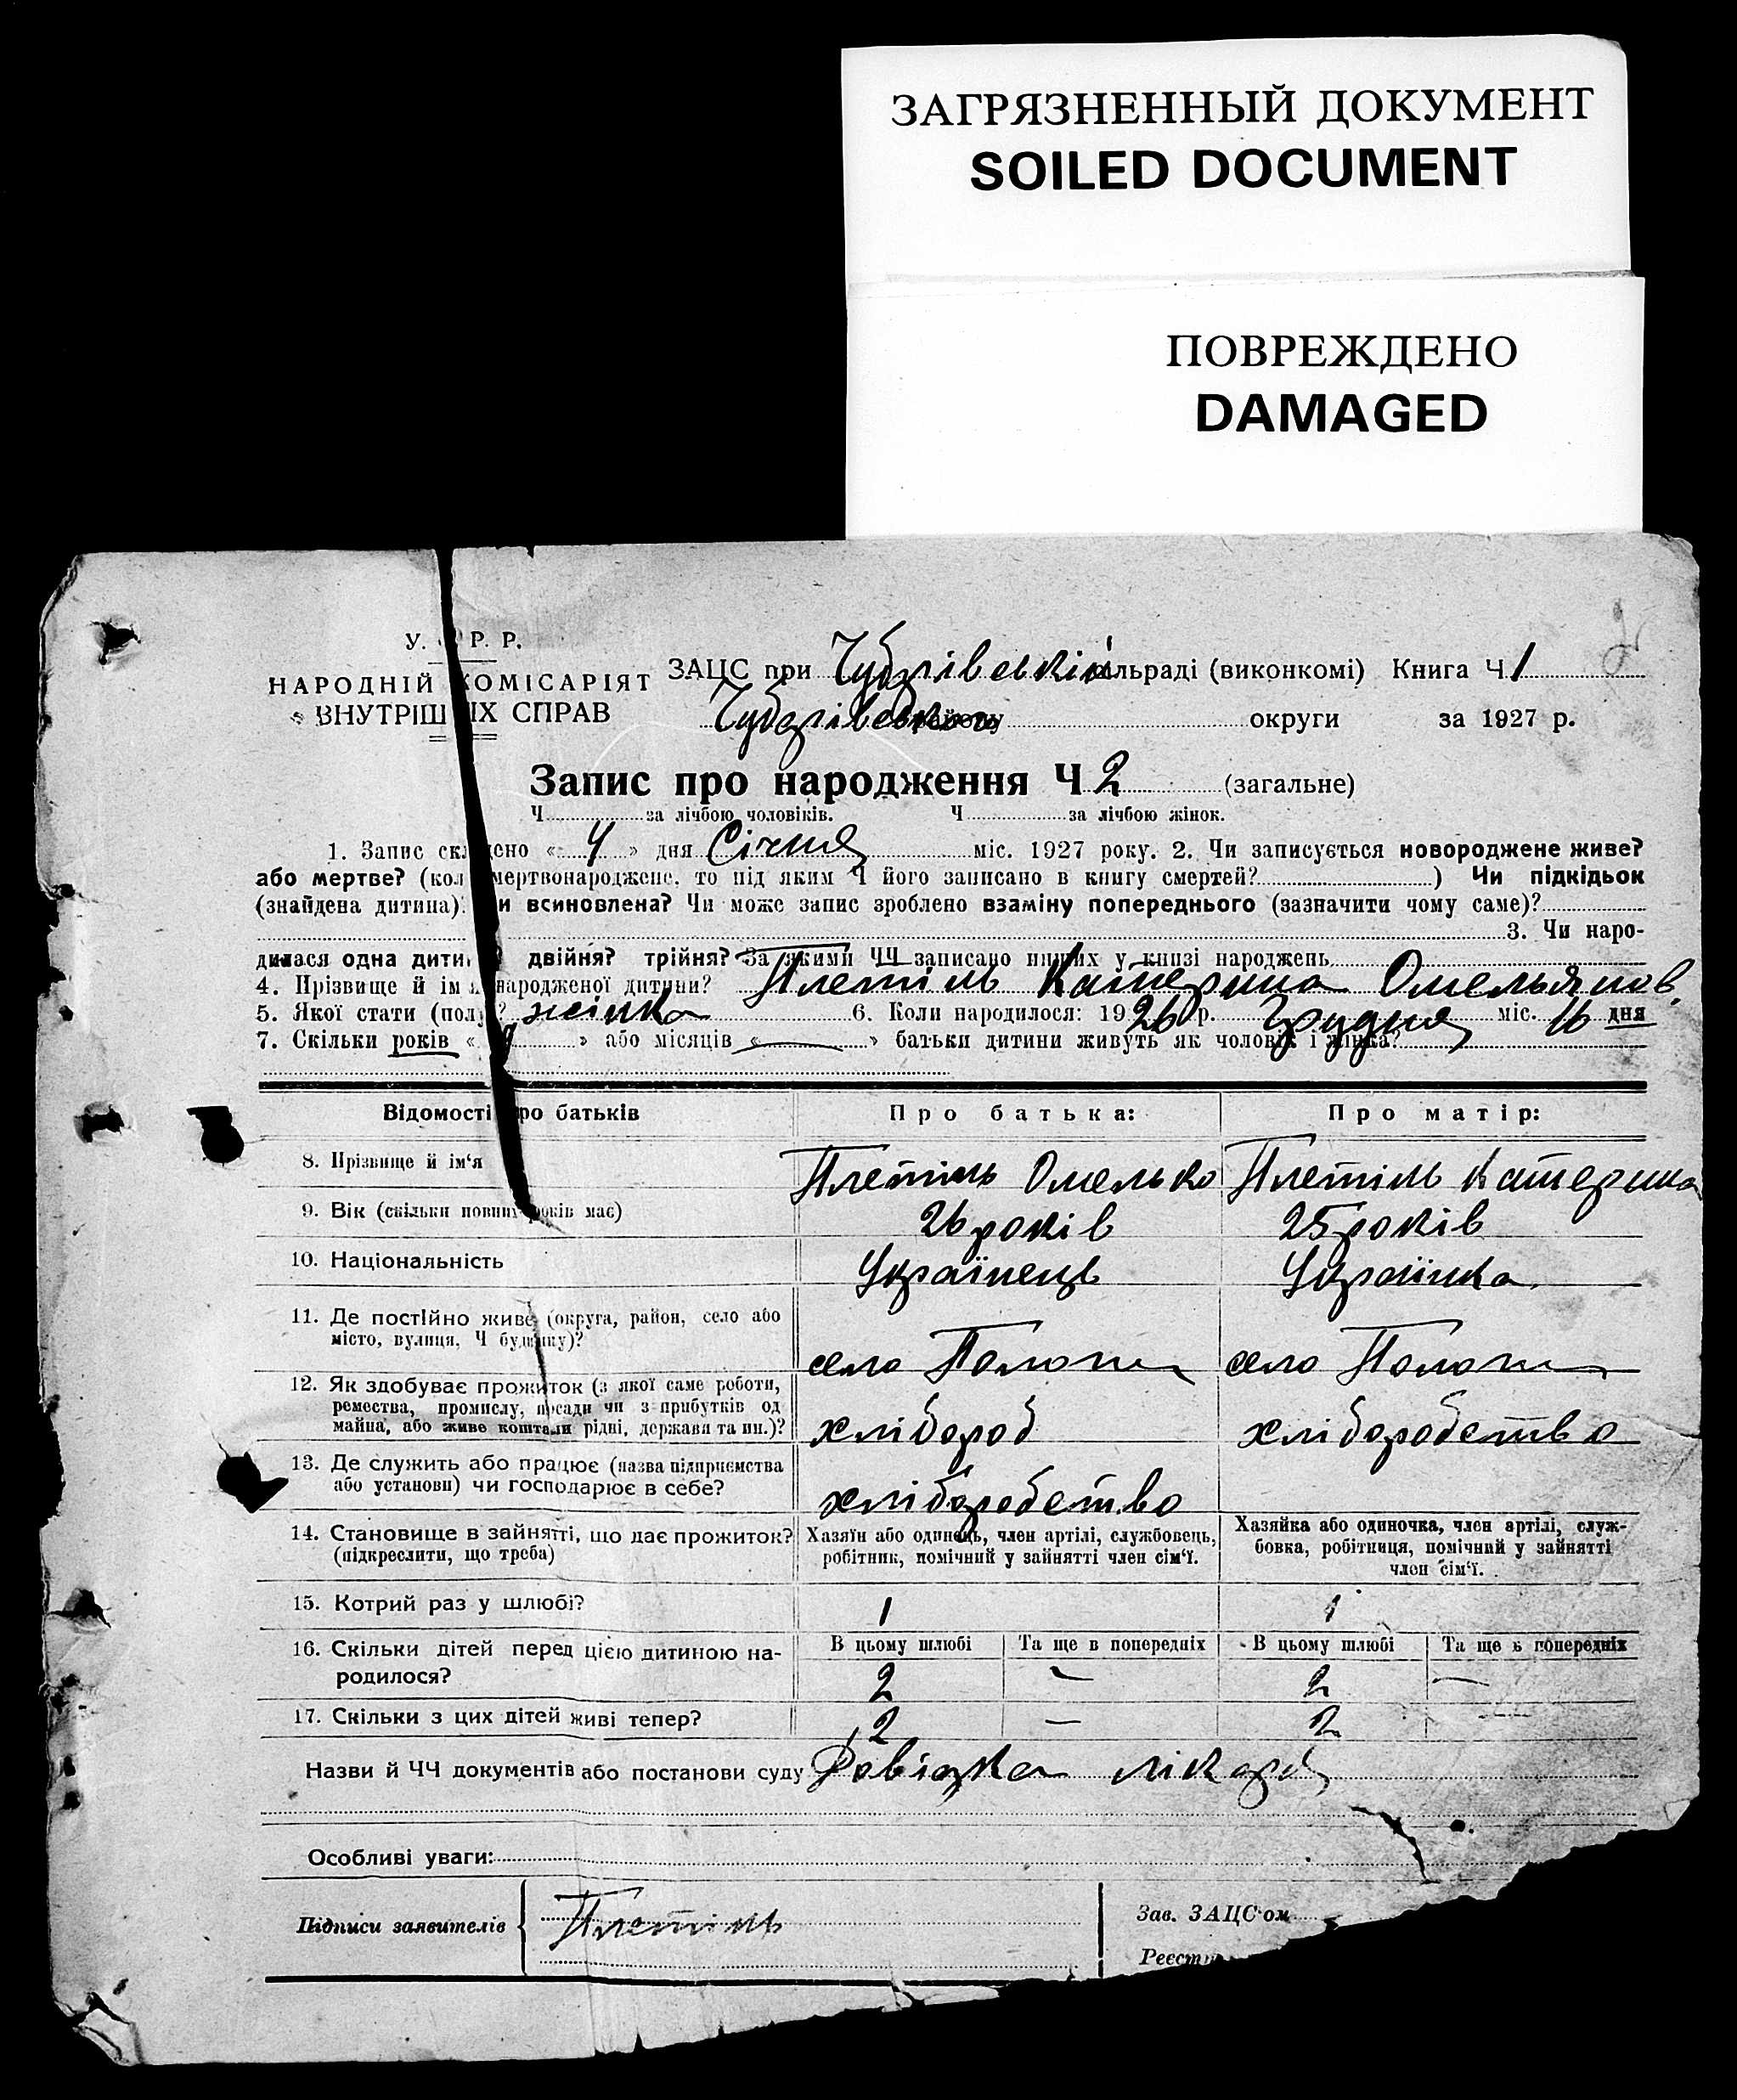 ЗАГРЯЗНЕННЫЙ ДОКУМЕНТ
SOILED DOCUMENT
ПОВРЕЖДЕНО
DAMAGED
2
У. Р. Р.
НАРОДНІЙ КОМІСАРІЯТ
ВНУТРІШ ІХ СПРАВ
ЗАЦС при сільраді (виконкомі) Книга Ч 1
округи за 1927 р.
Запис про народження Ч 2 (загальне)
Ч за лічбою чоловіків. Ч за лічбою жінок.
1. Запис скл дено « 4 » дня Січня міс. 1927 року. 2. Чи записується новороджене живе?
або мертве? (кол мертвонароджене, то під яким Ч його записано в книгу смертей? ) Чи підкідьок
(знайдена дитина)? и всиновлена? Чи може запис зроблено взаміну попереднього (зазначити чому саме)?
3. Чи наро-
дилася одна дити двійня? трійня? За якими ЧЧ записано инших у книзі народжень
4. Прізвище й ім народженої дитини? Плетінь Катерина Омельянов.
5. Якої стати (пол ? жінка 6. Коли народилося: 1926 р. Грудня міс. 16 дня
7. Скільки років « » або місяців « — » батьки дитини живуть як чоловік і жінка?
Відомості ро батьків Про батька: Про матір:
8. Прізвище й ім‘я Плетінь Омелько Плетінь Катерина
9. Вік (скільки повних років має) 26 років 25 років
10. Національність Українець Українка
11. Де постійно живе (округа, район, село або
місто, вулиця, Ч будинку)? село Пологи село Пологи
12. Як здобуває прожиток (з якої саме роботи,
ремества, промислу, посади чи з прибутків од
майна, або живе коштами рідні, держави та ин.)? хлібороб хліборобство
13. Де служить або працює (назва підприємства
або установи) чи господарює в себе? хліборобство
14. Становище в зайнятті, що дає прожиток?
(підкреслити, що треба)
Хазяїн або одинець, член артілі, службовець,
робітник, помічний у зайнятті член сім‘ї.
Хазяйка або одиночка, член артілі, служ-
бовка, робітниця, помічний у зайнятті
член сім‘ї.
15. Котрий раз у шлюбі? 1 1
16. Скільки дітей перед цією дитиною на-
родилося?
В цьому шлюбі Та ще в попередніх В цьому шлюбі Та ще в попередніх
2 — 2 —
17. Скільки з цих дітей живі тепер? 2 — 2
Назви й ЧЧ документів або постанови суду Довідка лікаря
Особливі уваги:
Підписи заявителів Плетінь
Зав. ЗАЦС‘ом
Реєст